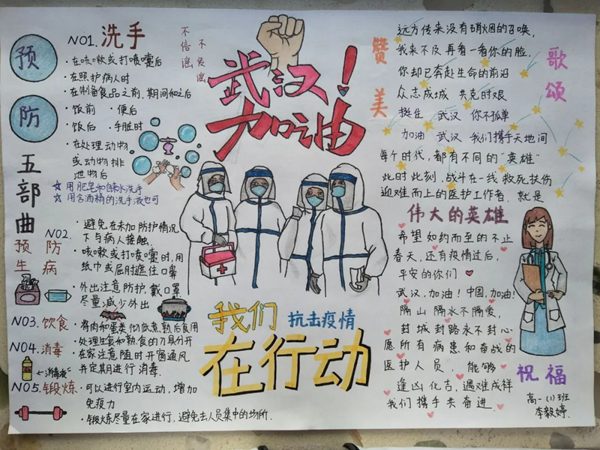 预防五部曲
NO1. 洗手
·在咳嗽或打喷嚏后
·在照护病人时
·在制备食品之前、期间和之后
·饭前 便后
·饭后 ·手脏时
·在处理动物
或动物排
泄物后
☆用肥皂和自来水洗手
☆用含酒精的洗手液也可
NO2.
预防生病
·避免在未加防护情况
下与病人接触
·咳嗽或打喷嚏时,用
纸巾或屈肘遮住口鼻
·外出注意防护,戴口罩
尽量减少外出
NO3. 饮食
·将肉和蛋类彻底煮熟后食用
·处理生食和熟食的刀具分开
NO4. 消毒
·在家注意随时开窗通风
并定期进行消毒.
←消毒液
NO5. 锻炼
·可以进行室内运动,增加
免疫力
·锻炼尽量在家进行,避免去人员集中的场所.
不信谣
不传谣
武汉!
加油
我们
抗击疫情
在行动
赞美
歌颂
远方传来没有硝烟的召唤,
我来不及再看一看你的脸,
你却已奔赴生命的前沿
众志成城 共克时艰
挺住 武汉 你不孤单
加油 武汉 我们携手天地间
每个时代,都有不同的“英雄”
此时此刻,战斗在一线救死扶伤
迎难而上的医护工作者,就是
伟大的英雄
希望如约而至的不止
春天,还有疫情过后,
平安的你们
武汉,加油!中国,加油!
隔山隔水不隔爱,
封城封路永不封心.
愿所有病患和奋战的
医护人员 能够
逢凶化吉,遇难成祥
我们携手共奋进
祝福
高一(1)班
李毅婷